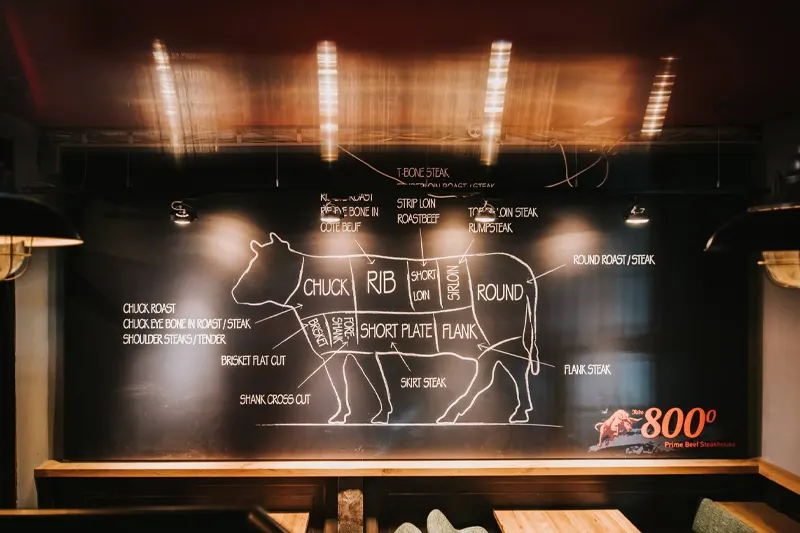 T-BONE STEAK
STRIP LOIN
ROASTBEEF
RIB EYE BONE IN
COTE BEUF
TOP SIRLOIN STEAK
RUMPSTEAK
ROUND ROAST / STEAK
CHUCK
RIB
SHORT
LOIN
SIRLOIN
ROUND
CHUCK ROAST
CHUCK EYE BONE IN ROAST / STEAK
SHOULDER STEAKS / TENDER
BRISKET
FORE
SHANK
SHORT PLATE
FLANK
BRISKET FLAT CUT
SKIRT STEAK
FLANK STEAK
SHANK CROSS CUT
800°
Prime Beef Steakhouse